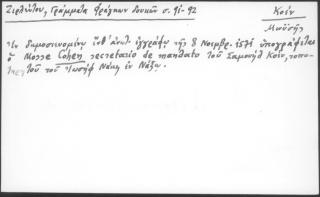 Ζερλέντου, Γράμματα Φράγκων δουκῶν σ. 91-92
Κοέν
Μωϋσῆς
Ἐν δημοσιευομένῳ ὑπ' ἀριθ. ἐγγράφῳ τῆς 8 Νοεμβρ. 1571 ὑπογράφεται
ὁ Mosse Cohen secretario de mandato τοῦ Σαμουὴλ Κοέν, τοπο-
τοῦ τοῦ Ἰωσὴφ Νάκη ἐν Νάξῳ.